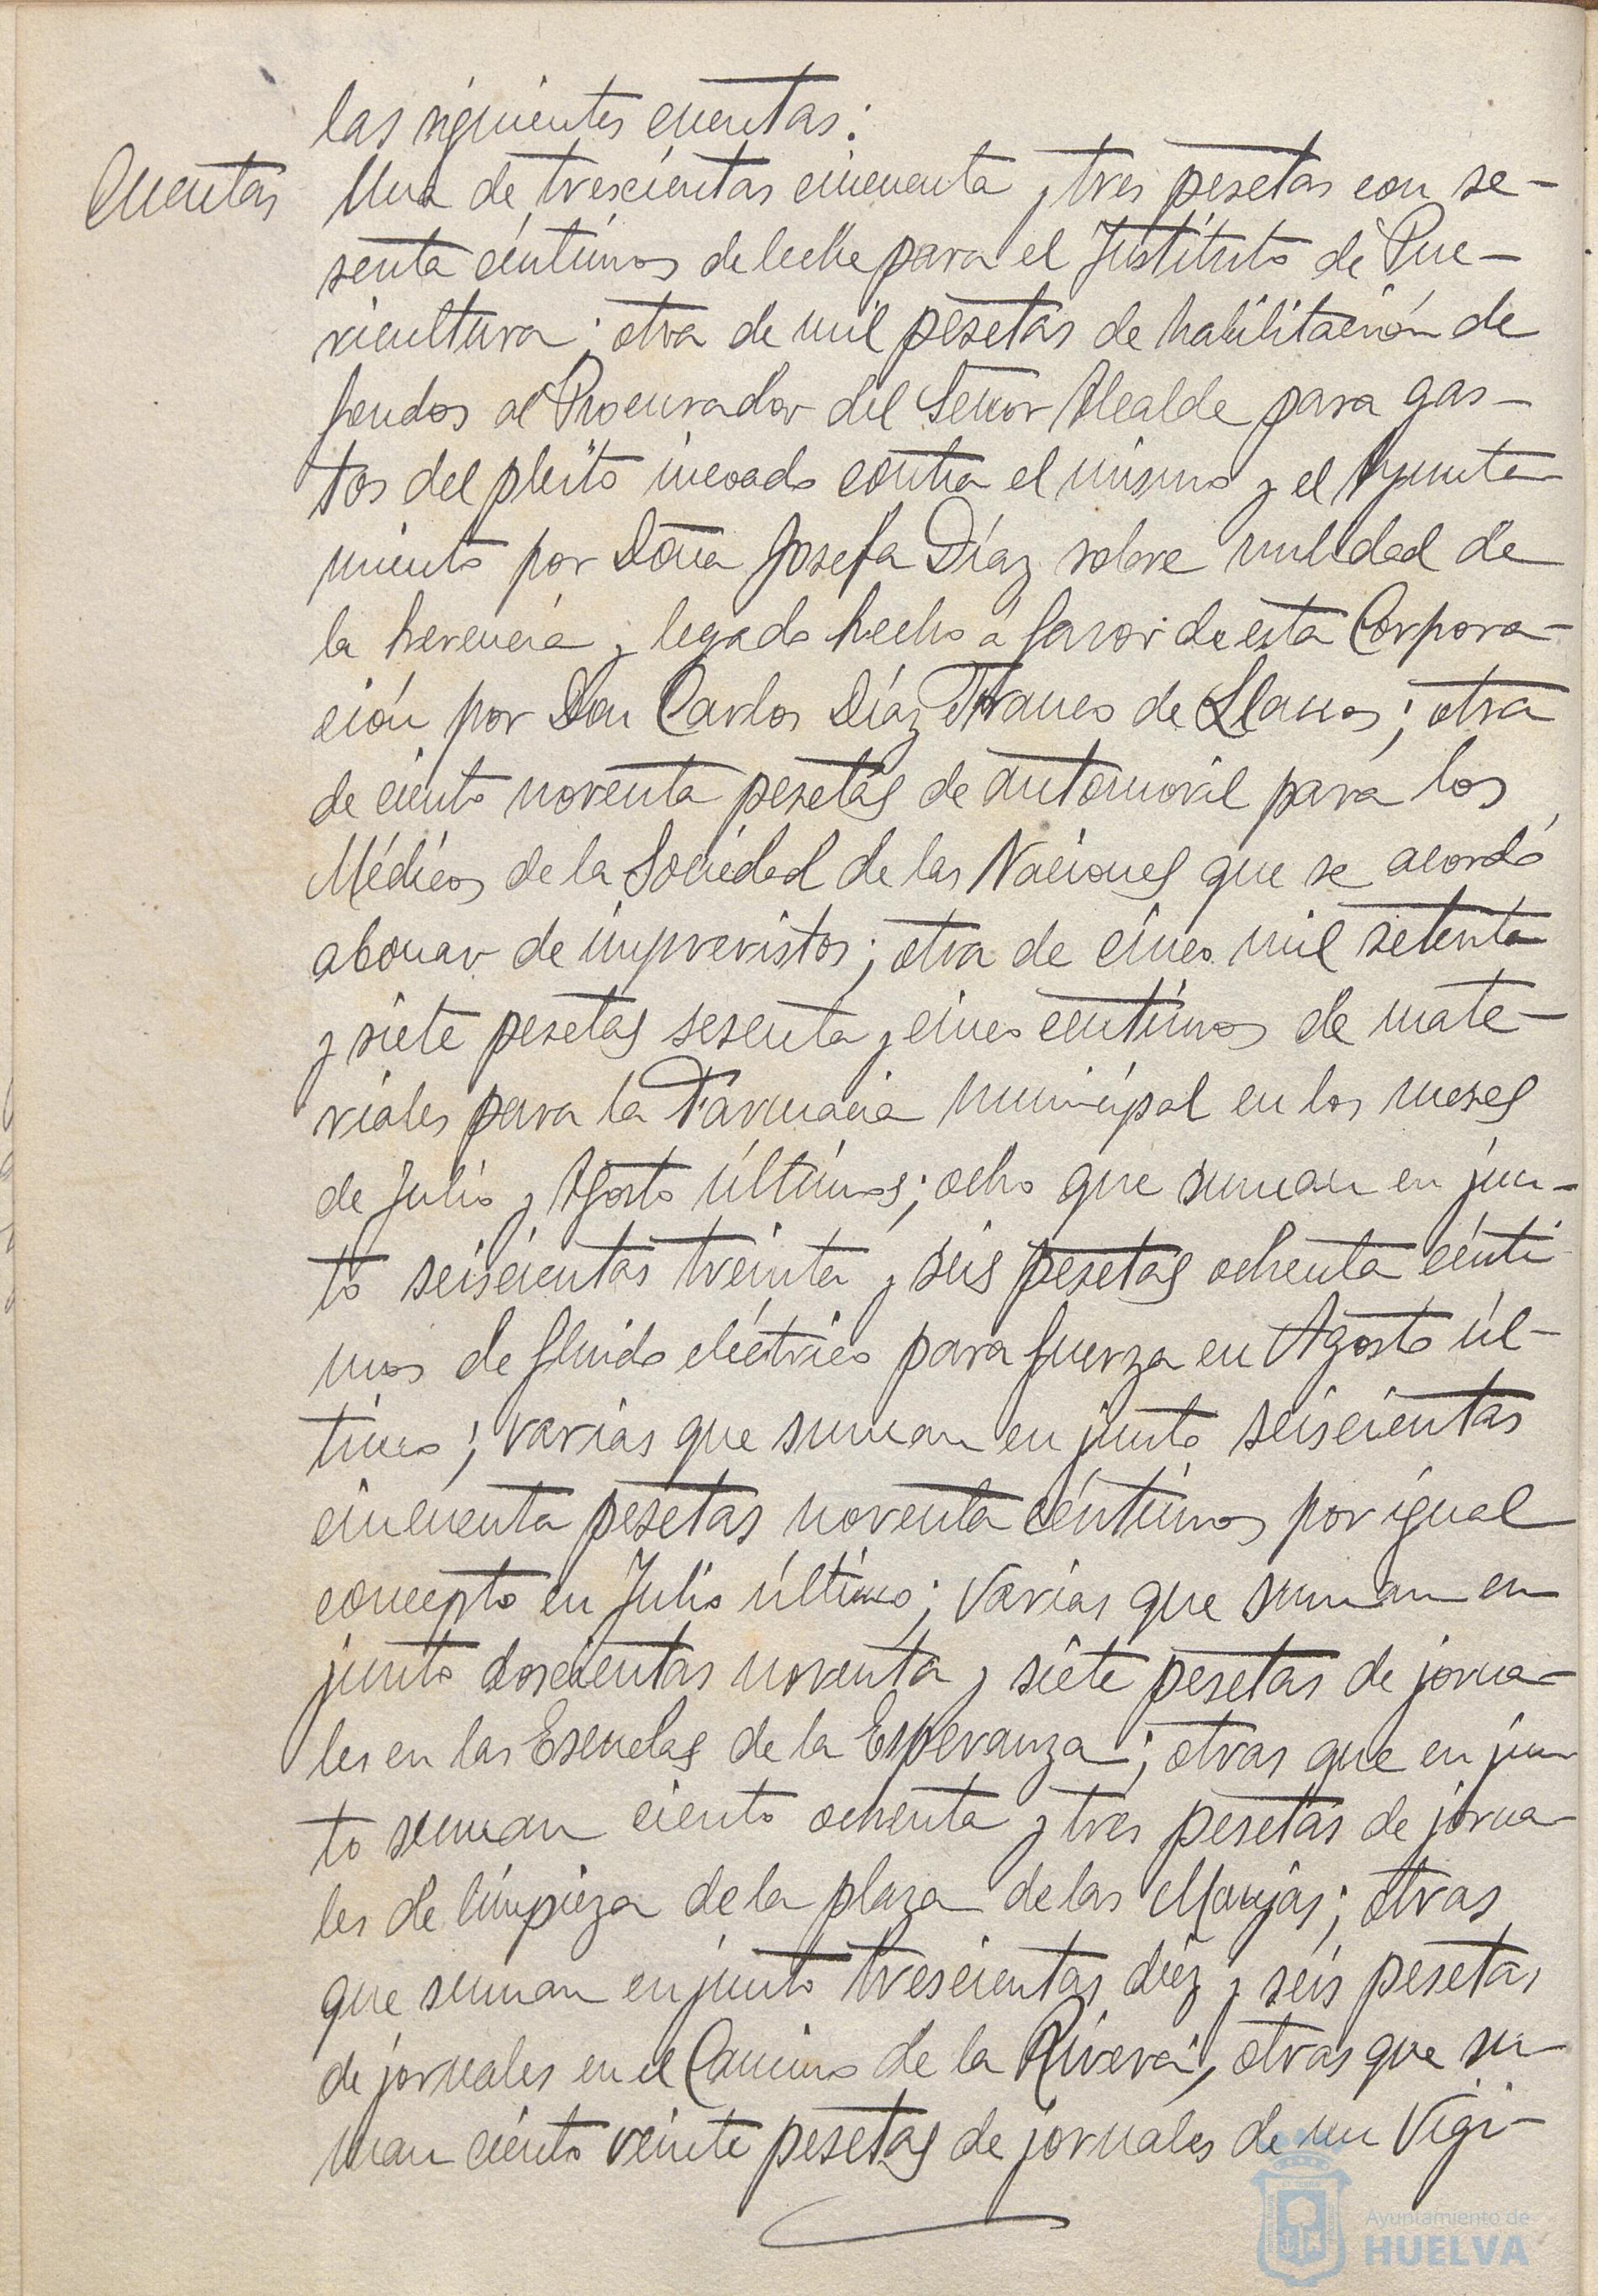 las siguientes cuentas:
Cuentas Una de trescientas cincuenta y tres pesetas con se-
senta céntimos de leche para el Instituto de Pue-
ricultura; otra de mil pesetas de habilitación de
fondos al Procurador del Señor Alcalde para gas-
tos del pleito incoado contra el mismo y el Ayunta-
miento por Doña Josefa Díaz sobre nulidad de
la herencia y legado hecho a favor de esta Corpora-
ción por Don Carlos Díaz Franco de Llanos; otra
de ciento noventa pesetas de automovil para los
Médicos de la Sociedad de las Naciones que se acordó
abonar de imprevistos; otra de cinco mil setenta
y siete pesetas sesenta y cinco centimos de mate-
riales para la Farmacia municipal en los meses
de Julio y Agosto últimos; ocho que suman en jun-
to seiscientas treinta y seis pesetas ochenta cénti
mos de fluido eléctrico para fuerza en Agosto úl-
timo; varias que suman en junto seiscientas
cincuenta pesetas noventa céntimos por igual
concepto en Julio último; varias que suman en
junto doscientas noventa y siete pesetas de jorna-
les en las Escuelas de la Esperanza; otras que en jun-
to suman ciento ochenta y tres pesetas de jorna-
les de limpieza de la plaza de las Monjas; otras
que suman en junto trescientas diez y seis pesetas
de jornales en el Camino de la Rivera; otras que su-
man ciento veinte pesetas de jornales de un Vigi-
Ayuntamiento de
HUELVA